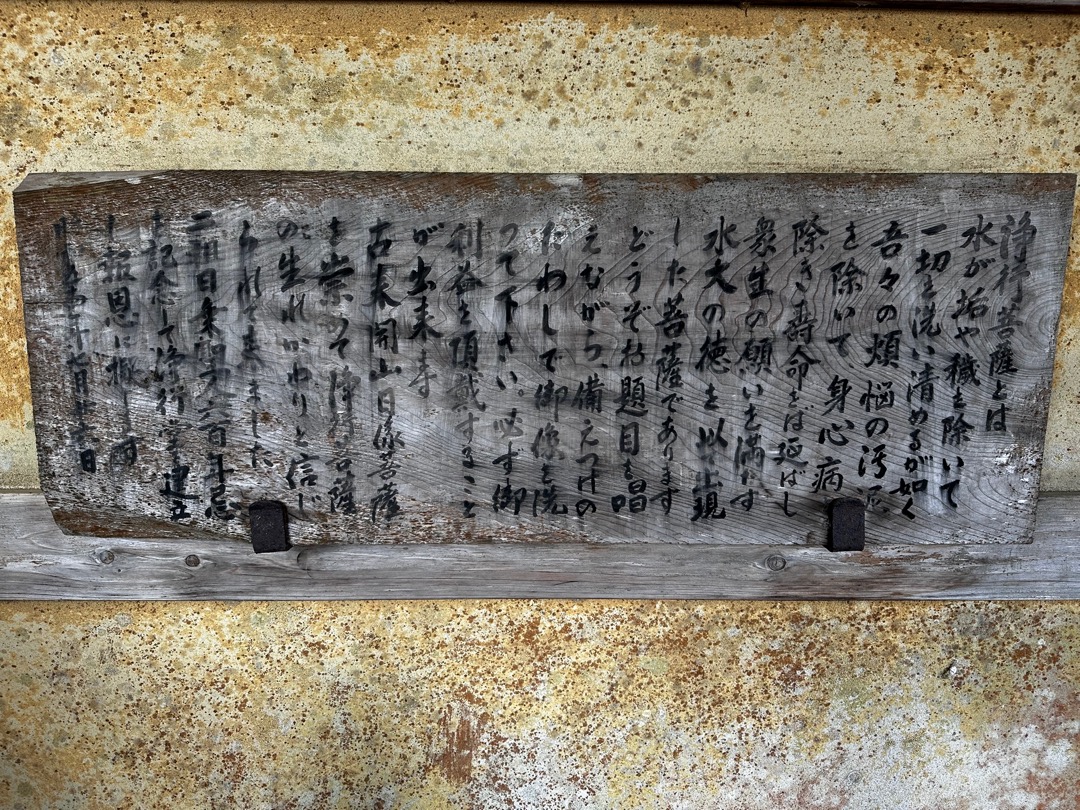 浄行菩薩とは
水が垢や穢を除いて
一切を洗い清めるが如く
吾々の煩悩の汚泥
を除いて、身心病
除き寿命をば延ばし
衆生の願いを満たす
水大の徳を以出現
した菩薩であります
どうぞお題目を唱
えながら、備えつけの
たわしで御像を洗
つて下さい。必ず御
利益を頂戴すること
が出来ます
古来開山日像菩薩
を崇めて浄行菩薩
の生れかわりと信じ
られて来ました
日朱 六百年忌
を記念して浄行堂建立
し報恩に
月 日